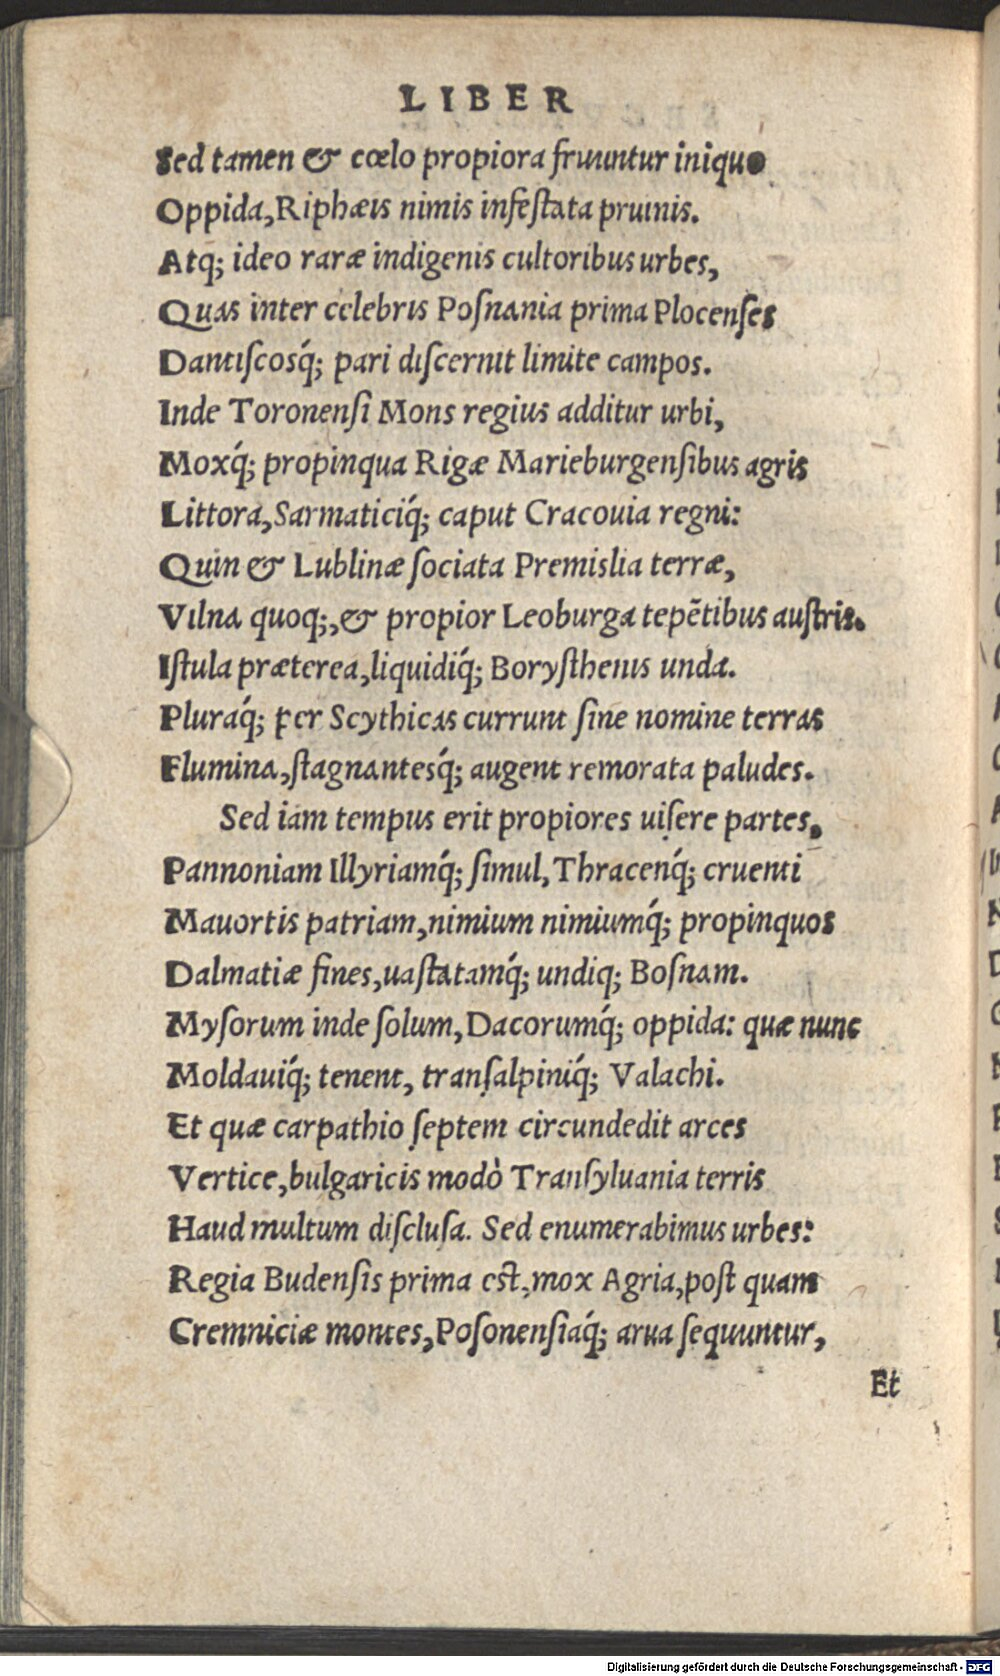 LIBER
Sed tamen & cœlo propiora fruuntur iniquo
Oppida,Riphæis nimis infeſtata pruinis.
Atq; ideo raræ indigenis cultoribus urbes,
Quas inter celebris Poſnania prima Plocenſes
Dantiſcosq́; pari diſcernit limite campos.
Inde Toronenſi Mons regius additur urbi,
Moxq́; propinqua Rigæ Marieburgenſibus agris
Littora,Sarmaticiq́; caput Cracouia regni:
Quin & Lublinæ ſociata Premislia terræ,
Vilna quoq;,& propior Leoburga tepẽtibus auſtris.
Iſtula præterea,liquidiq́; Boryſthenis unda.
Pluraq́; per Scythicas currunt ſine nomine terras
Flumina,ſtagnantesq́; augent remorata paludes.
Sed iam tempus erit propiores uiſere partes.
Pannoniam Illyriamq́; ſimul,Thracenq́; cruenti
Mauortis patriam,nimium nimiumq́; propinquos
Dalmatiæ fines,uaſtatamq́; undiq; Boſnam.
Myſorum inde ſolum,Dacorumq́; oppida: quæ nunc
Moldauiq́; tenent, tranſalpiniq́; Valachi.
Et quæ carpathio ſeptem circundedit arces
Vertice,bulgaricis modò Tranſyluania terris
Haud multum diſcluſa. Sed enumerabimus urbes:
Regia Budenſis prima eſt,mox Agria,poſt quam
Cremniciæ montes,Poſonenſiaq́; arua ſequuntur,
Et
Digitalisierung gefördert durch die Deutsche Forschungsgemeinschaft - DFG